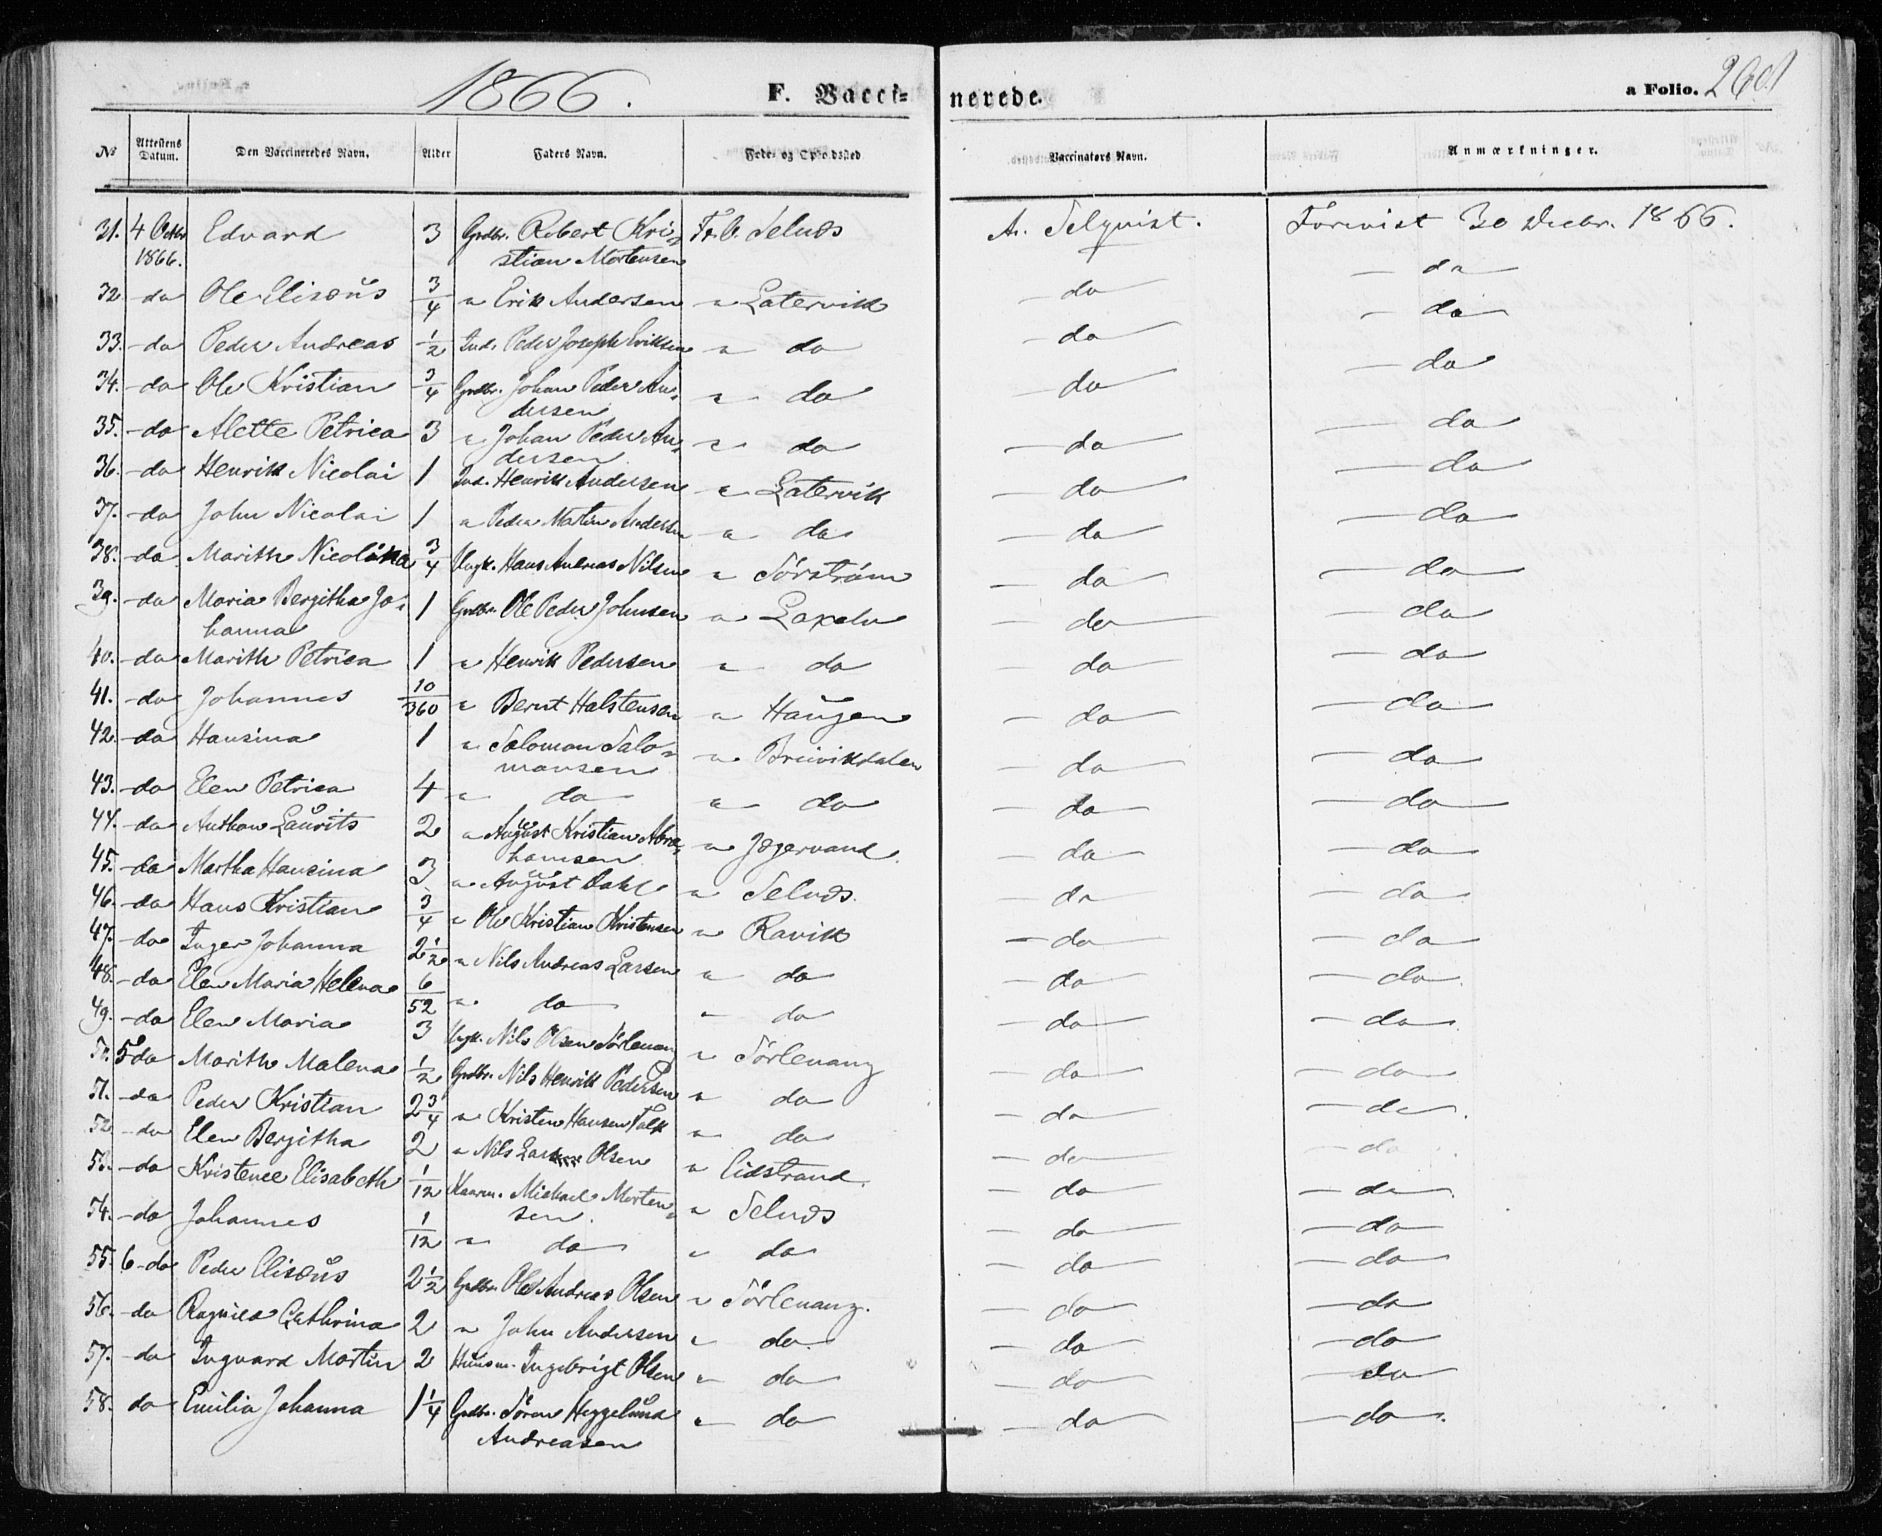 1866. F. Vacci- nerede. a Folio. 260
No Attestens Datum. Den Vaccineredes Navn. Alder Faders Navn. Føde- og Opholdssted Vaccinatørs Navn. Anmærkninger.
31. 4 Octbr 1866. Edvard 3 Grdbr. Robert Kri- F. O. Selnes A. Selqvist. Forevist 30 Decbr. 1866.
stian Mortensen
32 - do Ole Elisæus 3/4 " Erik Andersen " Latervik - do - - do -
33. - do Peder Andreas 1/2 Ind. Peder Joseph Eriksen " do - do - - do -
34. - do Ole Kristian 3/4 Grdbr. Johan Peder An- " do - do - - do -
dersen
35. - do Alette Petrica 3 " Johan Peder An- " do - do - - do -
dersen
36. - do Henrik Nicolai 1 Ind. Henrik Andersen " Latervik - do - - do -
37. - do John Nicolai 1 " Peder Martin Andersen " do - do - - do -
38. - do Marith Nicolina 3/4 Ungk. Hans Andreas Nilsen " Sörström - do - - do -
39. - do Maria Bergitha Jo- 1 Grdbr. Ole Peder Johnsen " Lakselv - do - - do -
hanna
40. - do Marith Petrica 1 " Henrik Pedersen " do - do - - do -
41. - do Johannes 10/360 " Bernt Halstensen " Haugen - do - - do -
42. - do Hansina 1 " Salomon Salo- " Breivikdalen - do - - do -
monsen
43. - do Elen Petrica 4 " do " do - do - - do -
44. - do Anthon Laurits 2 " August Kristian Abra- " Jægervand. - do - - do -
hamsen
45. - do Martha Hansina 3 " August Dahl " Selnes. - do - - do -
46. - do Hans Kristian 3/4 " Ole Kristian Kristensen " Ravik - do - - do -
47. - do Inger Johanna 2 1/2 " Nils Andreas Larsen " do - do - - do -
48. - do Elen Maria Helena 6/52 " do " do - do - - do -
49. - do Elen Maria 3 Ungk. Nils Olsen Sörlenang " Sörlenang - do - - do -
50. 5 do Marith Malena 1/2 Grdbr. Nils Henrik Pedersen " do - do - - do -
51. - do Peder Kristian 2 3/4 " Kristen Hansen Falk " do - do - - do -
52 - do Elen Bergitha 2 " Nils Olsen " Eidstrand. - do - - do -
53. - do Kristence Elisabeth 1/12 Kaarm. Michael Morten- " Selnes - do - - do -
sen.
54. - do Johannes 1/12 " do " do - do - - do -
55. 6 - do Peder Elisæus 2 1/2 Grdbr. Ole Andreas Olsen " Sörlenang. - do - - do -
56. - do Ragnild Cathrina 2 " John Andersen " do - do - - do -
57. - do Ingvard Martin 2 Husm. Ingebrigt Olsen " do - do - - do -
58. do Emilia Johanna 1 1/4 Grdbr. Sören Heggelund " do - do - - do -
Andreasen